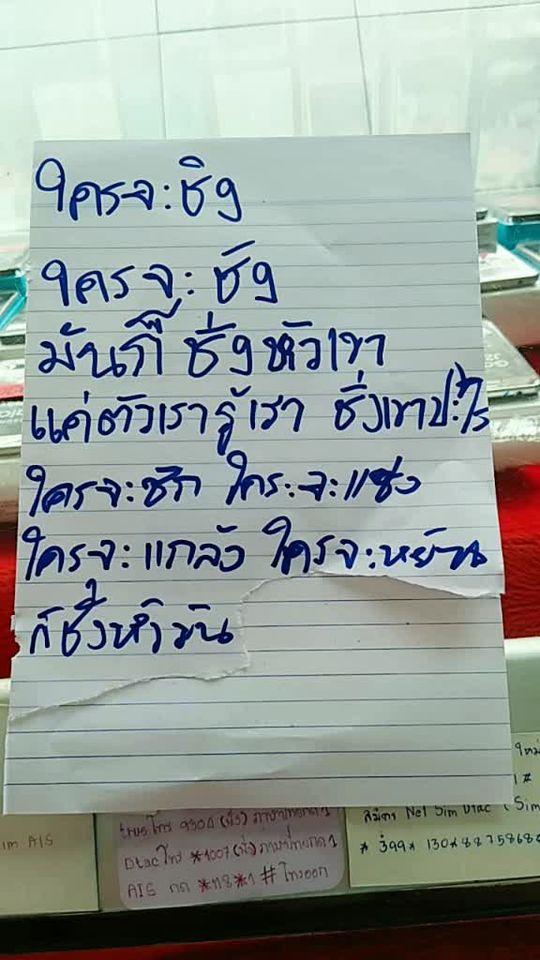 ใครจะชิง
ใครจะชัง
มันก็ ชั่งหัวเขา
แค่ตัวเรารู้เรา ชั่งเขาปะ
ใครจะชัก ใครจะแช่ง
ใครจะแกล้ง ใครจะหยัน
ก็ชั่งหัวมัน
im AIS
trueโทร 9304 (ฟัง) ภาษาไทยกด 1
Dtacโทร *1007 (ฟัง) ภาษาไทยกด 1
AIS กด *118*1 # โทรออก
ใหม่
1 #
Net Sim Dtac (Sim
* 399 * 130*8875868